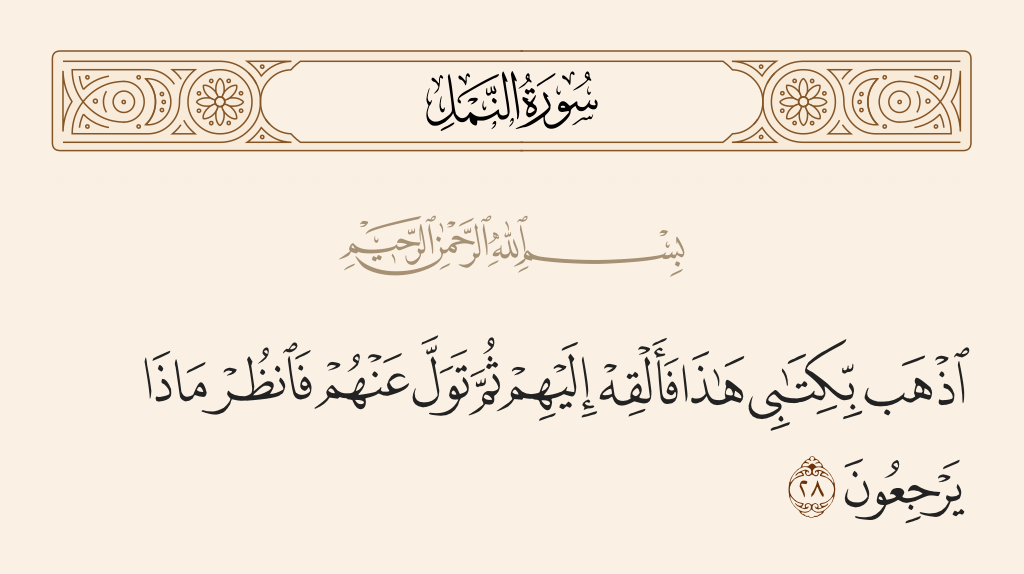 سُورَةُ النَّمْلِ
بِسْمِ ٱللَّهِ ٱلرَّحْمَٰنِ ٱلرَّحِيمِ
ٱذْهَب بِّكِتَٰبِى هَٰذَا فَأَلْقِهْ إِلَيْهِمْ ثُمَّ تَوَلَّ عَنْهُمْ فَٱنظُرْ مَاذَا
يَرْجِعُونَ ٢٨